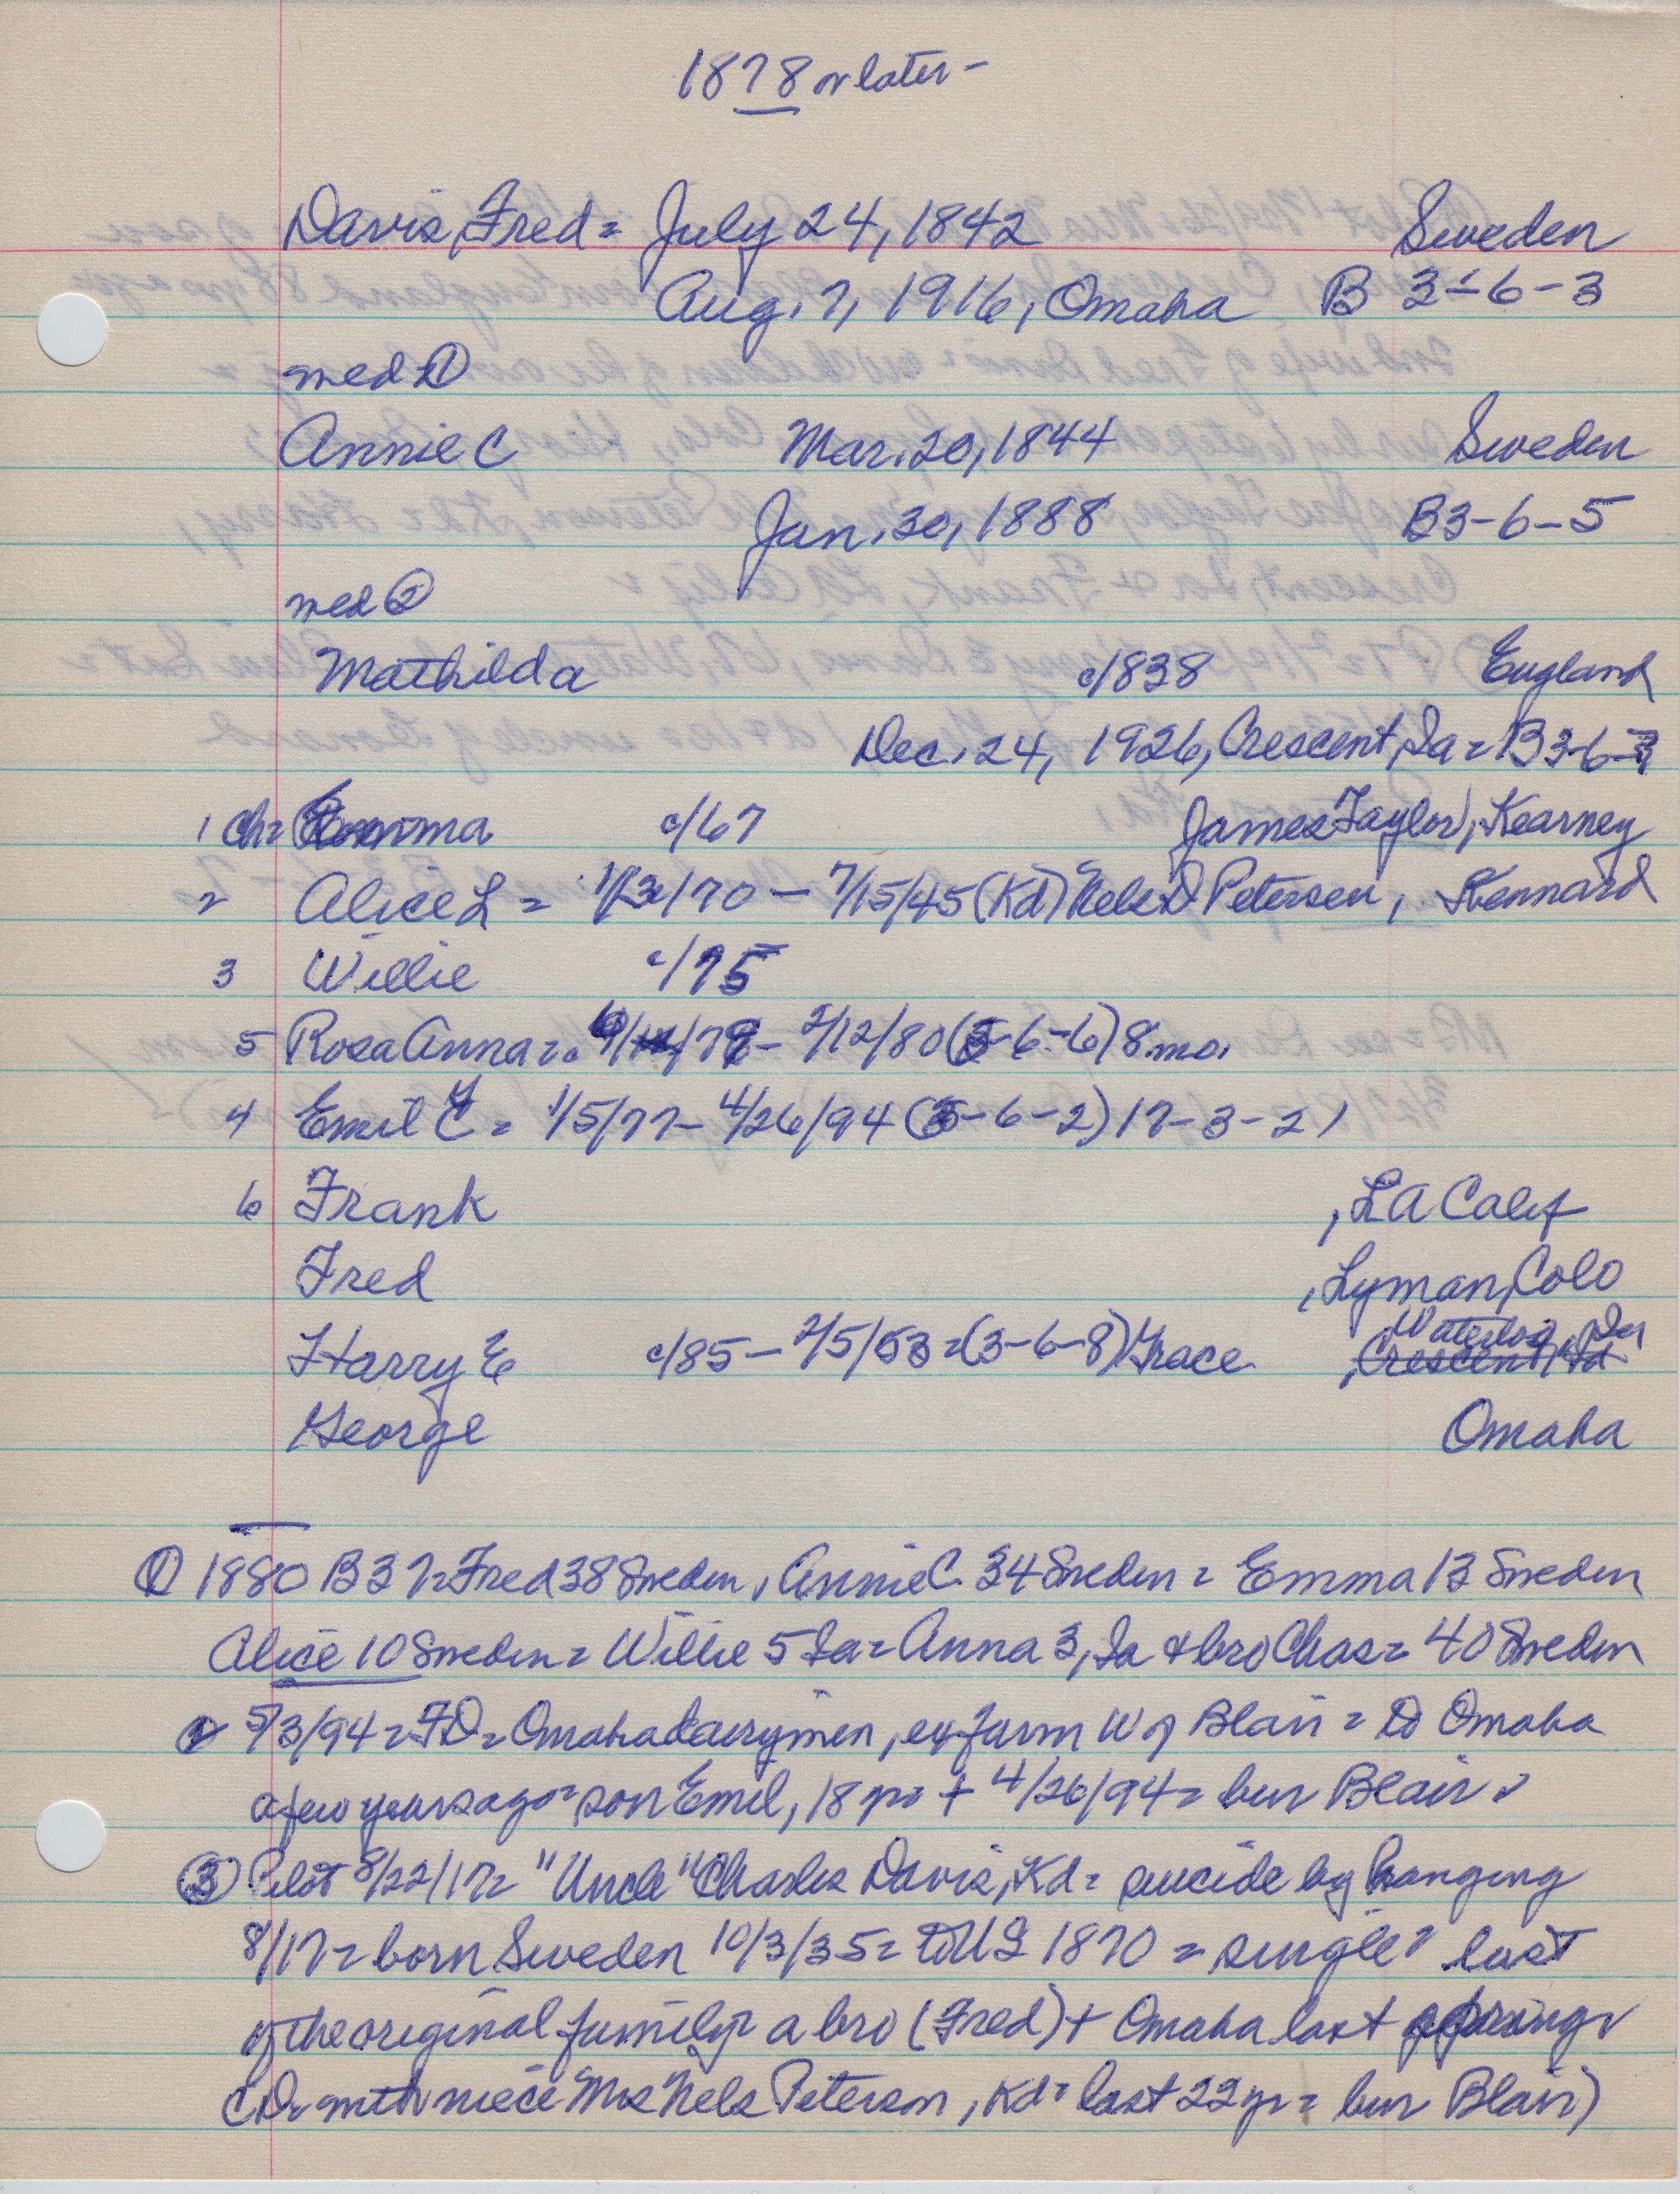 1878 or later -
Davis, Fred = July 24, 1842 Sweden
Aug. 7, 1916, Omaha B 3-6-3
med ①
Annie C Mar. 20, 1844 Sweden
Jan. 30, 1888 B3-6-5
med ②
Mathilda c/1838 England
Dec. 24, 1926, Crescent, Ia = B 3-6-
1 ch = Emma c/67 James Taylor, Kearney
2 Alice L = 1/3/70 - 7/15/45 (Kd) Nels D Petersen, Kennard
3 Willie c/75
5 Rosa Anna = 6/ /79 - 2/12/80 (3-6-6) 8 mo.
4 Emil = 1/5/77 - 4/26/94 (3-6-2) 17-3-21
6 Frank , LA Calif
Fred , Lyman, Colo
Waterloo,
Harry E c/85 - 2/5/53 = (3-6-8) Grace , Crescent, Ia
George Omaha
① 1880 B 37 = Fred 38 Sweden, Annie C. 34 Sweden = Emma 13 Sweden
Alice 10 Sweden = Willie 5 Ia = Anna 3, Ia + bro Chas = 40 Sweden
② 5/3/94 = FD = Omaha dairymen, ex farm W of Blair = to Omaha
a few years ago = son Emil, 18 yr = + 4/26/94 = bur Blair =
③ Pilot 8/22/17 = "Uncle" Charles Davis, Kd = suicide by hanging
8/17 = born Sweden 10/3/35 = to US 1870 = single = last
of the original family = a bro (Fred) + Omaha last spring =
CD = with niece Mrs Nels Peterson, Kd = last 22 yr = bur Blair)